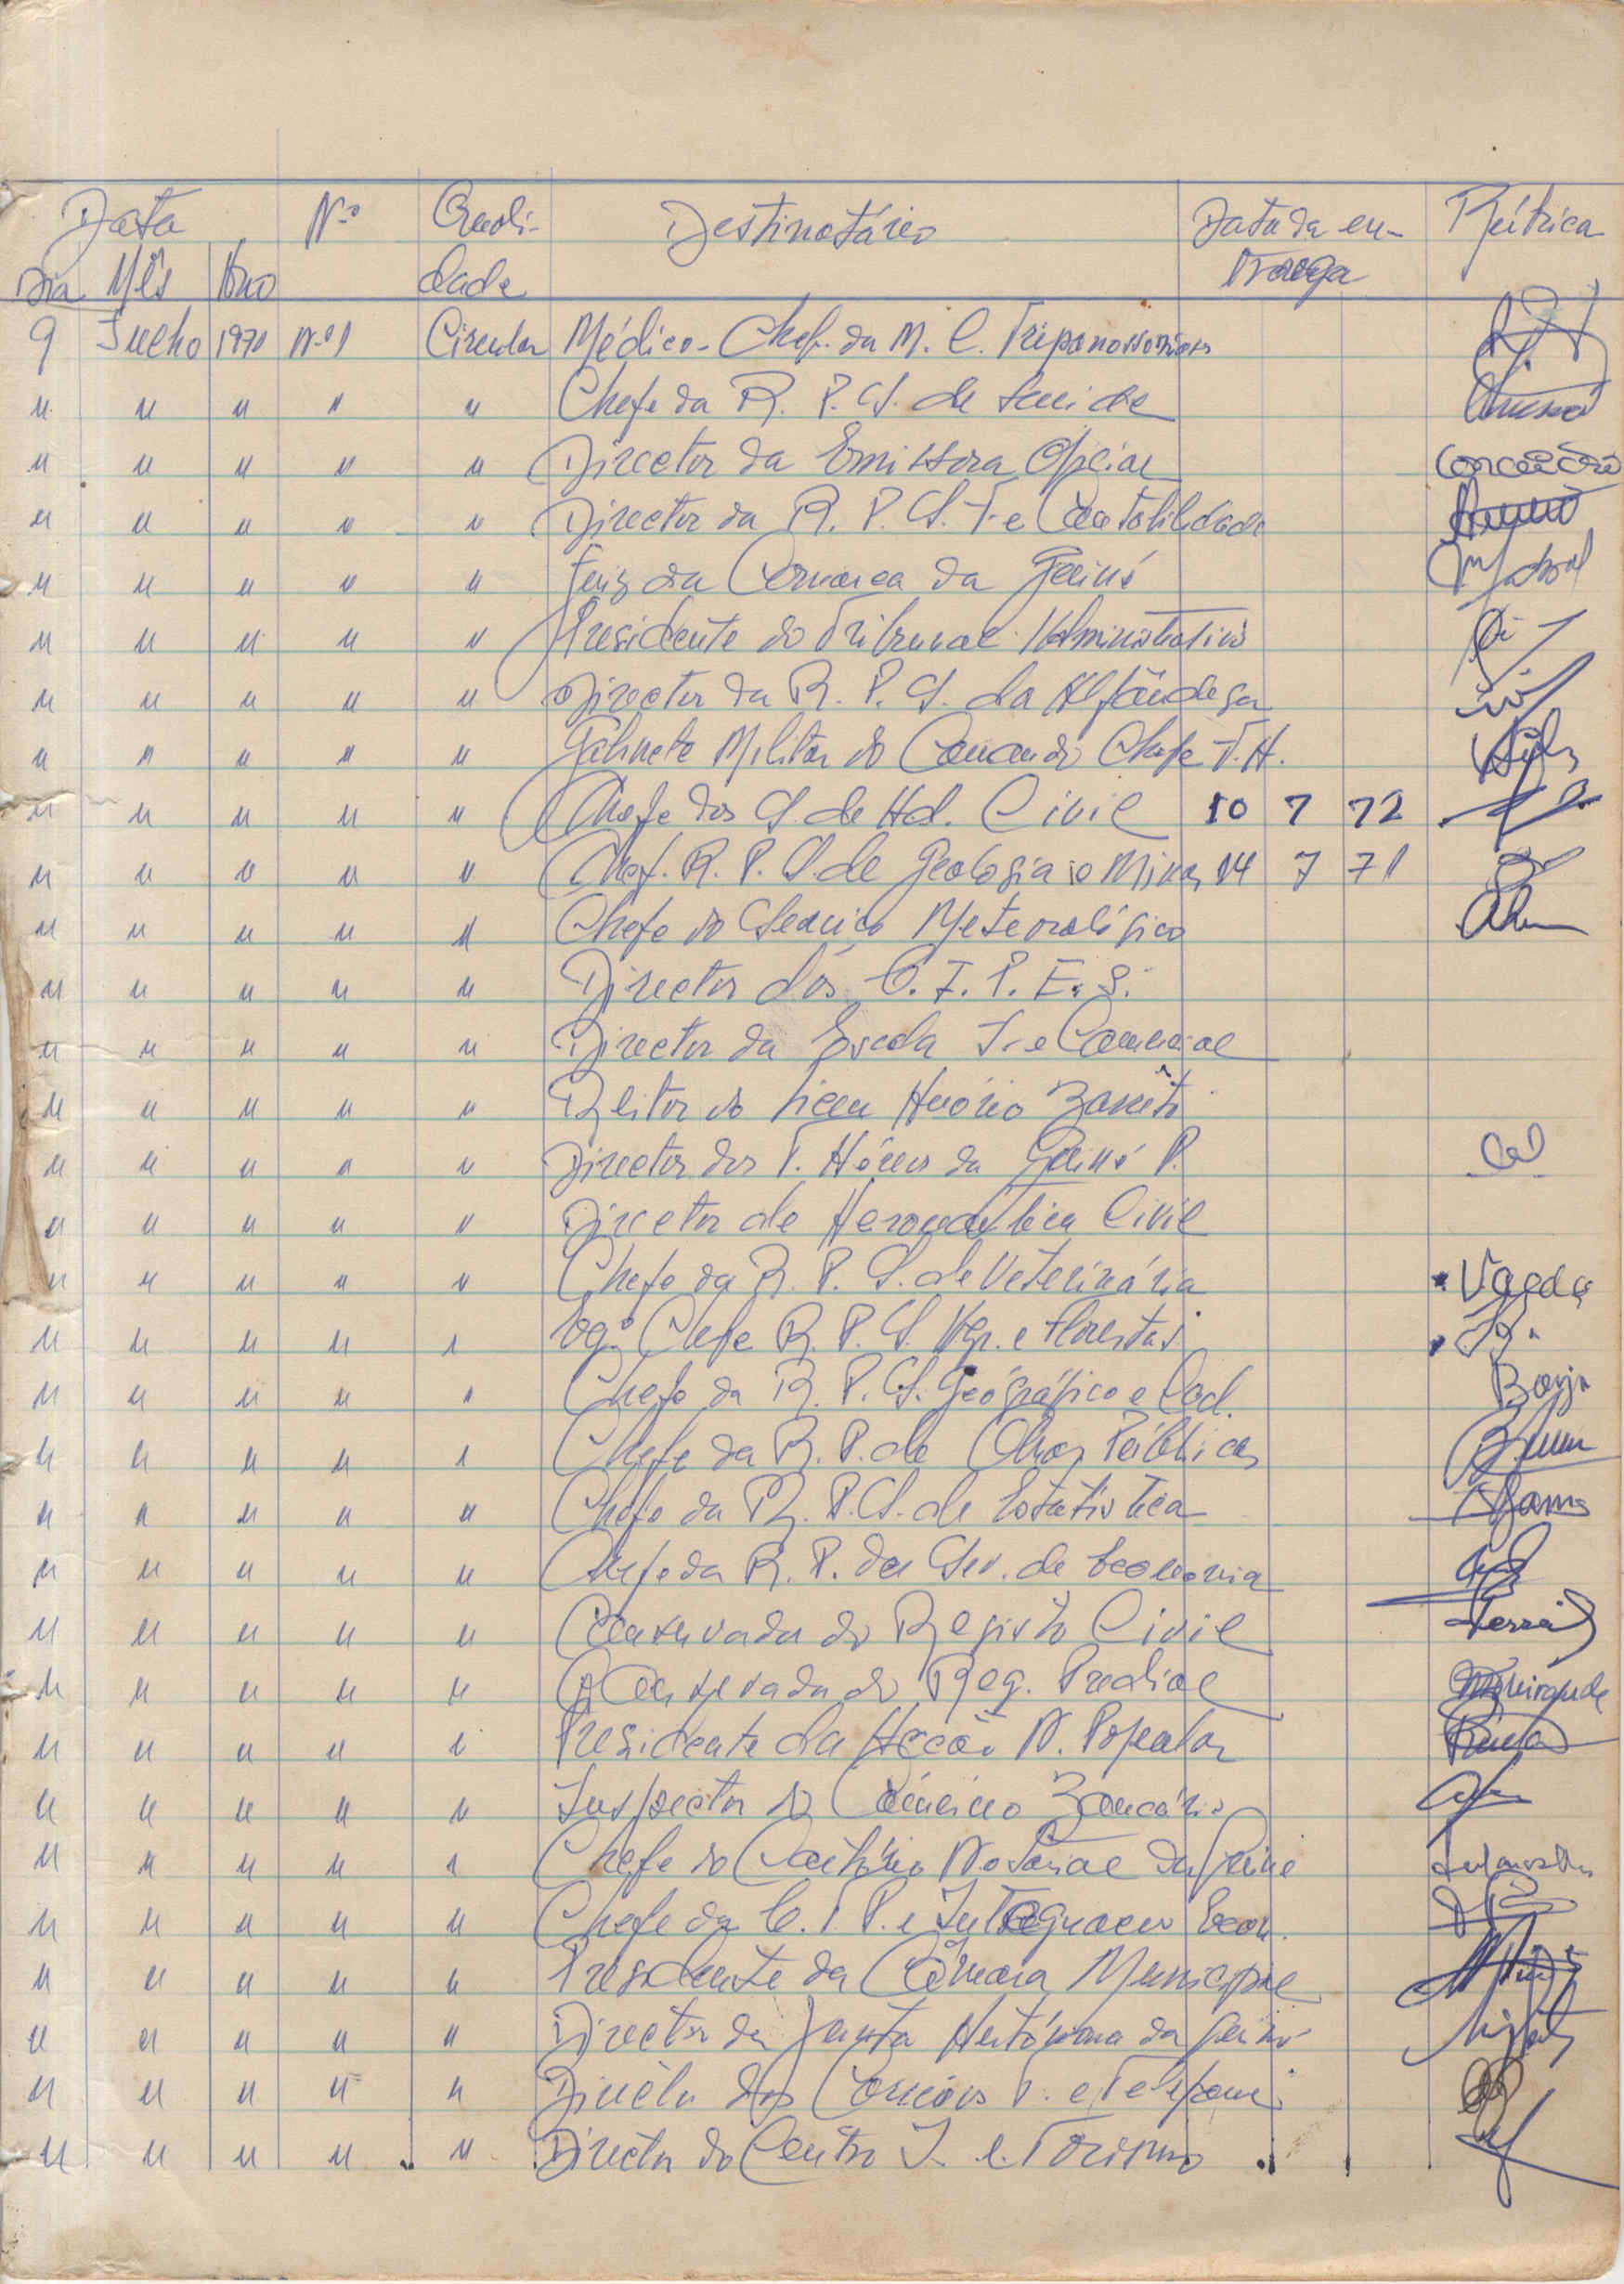 Data Nº Quali- Destinatário Data da en- Rúbrica
Dia Mês Ano dade trega
9 Julho 1971 Nº 1 Circular Médico-Chef. da M. C. Tripanossomiases
" " " " " Chefe da R. P. S. de Saúde
" " " " " Director da Emissora Oficial Conceição
" " " " " Director da R. P. S. F. e Contabilidade
" " " " " Juiz da Comarca da Guiné
" " " " " Presidente do Tribunal Administrativo
" " " " " Director da R. P. S. da Alfândega
" " " " " Gabinete Militar do Comando Chefe F. A.
" " " " " Chefe dos S. de Ad. Civil 10 7 72
" " " " " Chef. R. P. S. de Geologia e Minas 14 7 71
" " " " " Chefe do Serviço Meteorológico
" " " " " Director dos C. I. P. E. S.
" " " " " Director da Escola I. e Comercial
" " " " " Reitor do Liceu Honório Barreto
" " " " " Director dos T. Aéreos da Guiné P.
" " " " " Director de Aeronautica Civil
" " " " " Chefe da R. P. S. de Veterinária
" " " " " Engº Chefe R. P. S. Agr. e Florestas
" " " " " Chefe da R. P. S. Geográfico e Cad.
" " " " " Chefe da R. P. de Obras Públicas
" " " " " Chefe da R. P. S. de Estatistica
" " " " " Chefe da R. P. dos Serv. de Economia
" " " " " Conservador do Registo Civil
" " " " " Conservador do Reg. Predial
" " " " " Presidente da Acção N. Popular
" " " " " Inspector do Comércio Bancário
" " " " " Chefe do Cartório Notarial da Guiné
" " " " " Chefe da C. T. P. e Integração Econ.
" " " " " Presidente da Câmara Municipal
" " " " " Director da Junta Autónoma da Guiné
" " " " " Director dos Correios T. e Telefones
" " " " " Director do Centro I. e Torismo